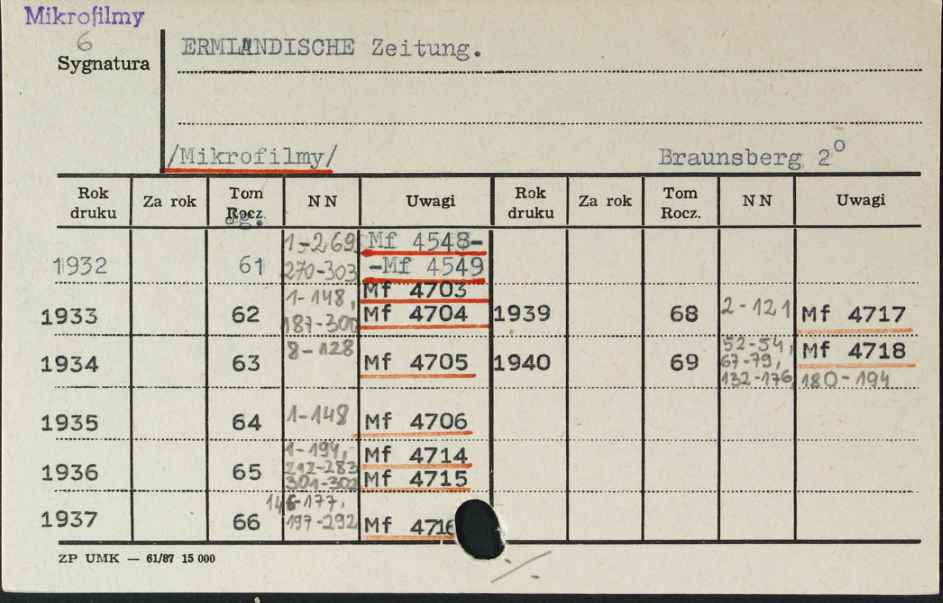 Mikrofilmy
6
Sygnatura
ERMLÄNDISCHE Zeitung.
/Mikrofilmy/ Braunsberg 2°
Rok druku Za rok Tom Rocz. NN Uwagi Rok druku Za rok Tom Rocz. NN Uwagi
1932 61 1-269 270-303 Mf 4548- -Mf 4549
1933 62 1-148, 187-300 Mf 4703 Mf 4704 1939 68 2-121 Mf 4717
1934 63 8-128 Mf 4705 1940 69 52-54, 67-79, 132-176, 180-194 Mf 4718
1935 64 1-148 Mf 4706
1936 65 1-194, 212-283 301-302 Mf 4714 Mf 4715
1937 66 146-177, 197-292 Mf 4716
ZP UMK — 61/87 15 000